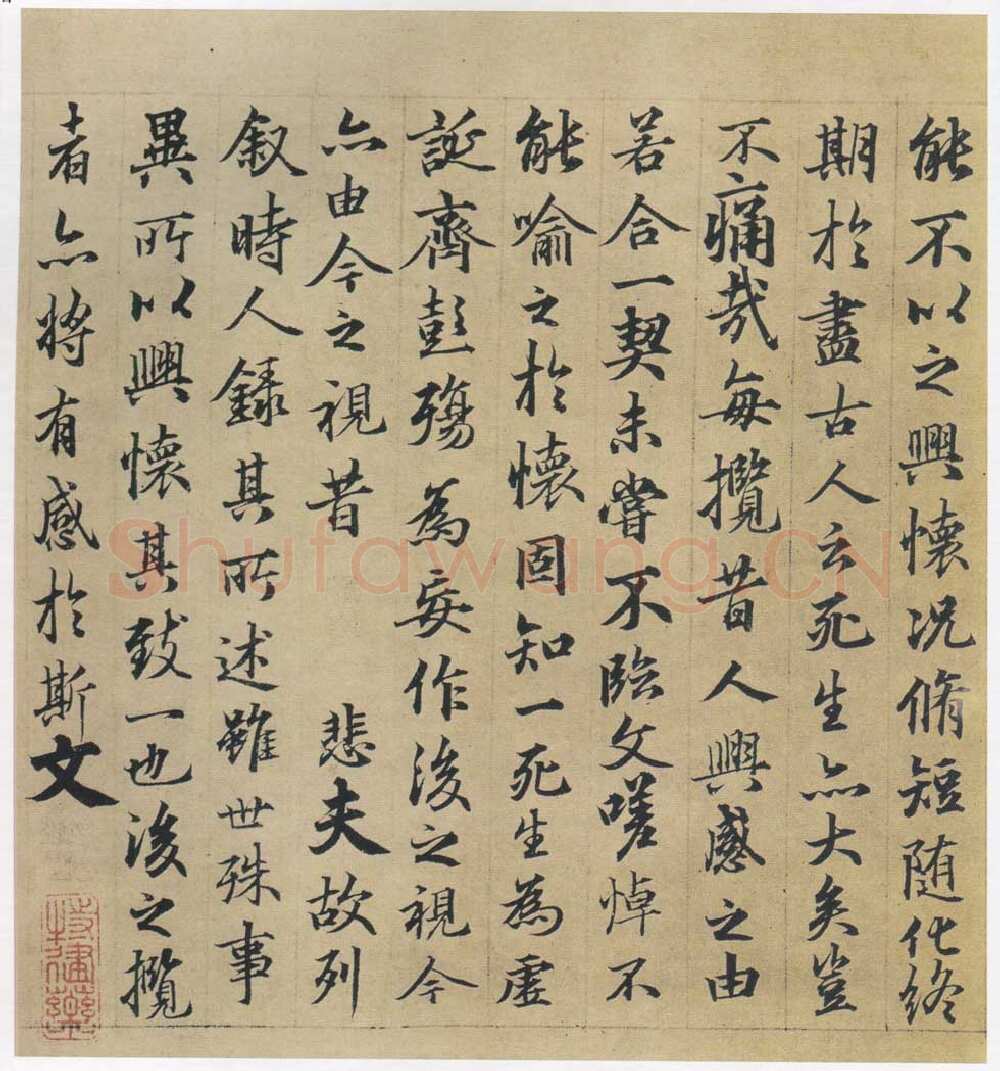 能不以之興懷况脩短随化終
期於盡古人云死生亦大矣豈
不痛哉每攬昔人興感之由
若合一契未嘗不臨文嗟悼不
能喻之於懷固知一死生為虛
誕齊彭殤為妄作後之視今
亦由今之視昔 悲夫故列
叙時人錄其所述雖世殊事
異所以興懷其致一也後之攬
者亦將有感於斯文
Shufawang.CN